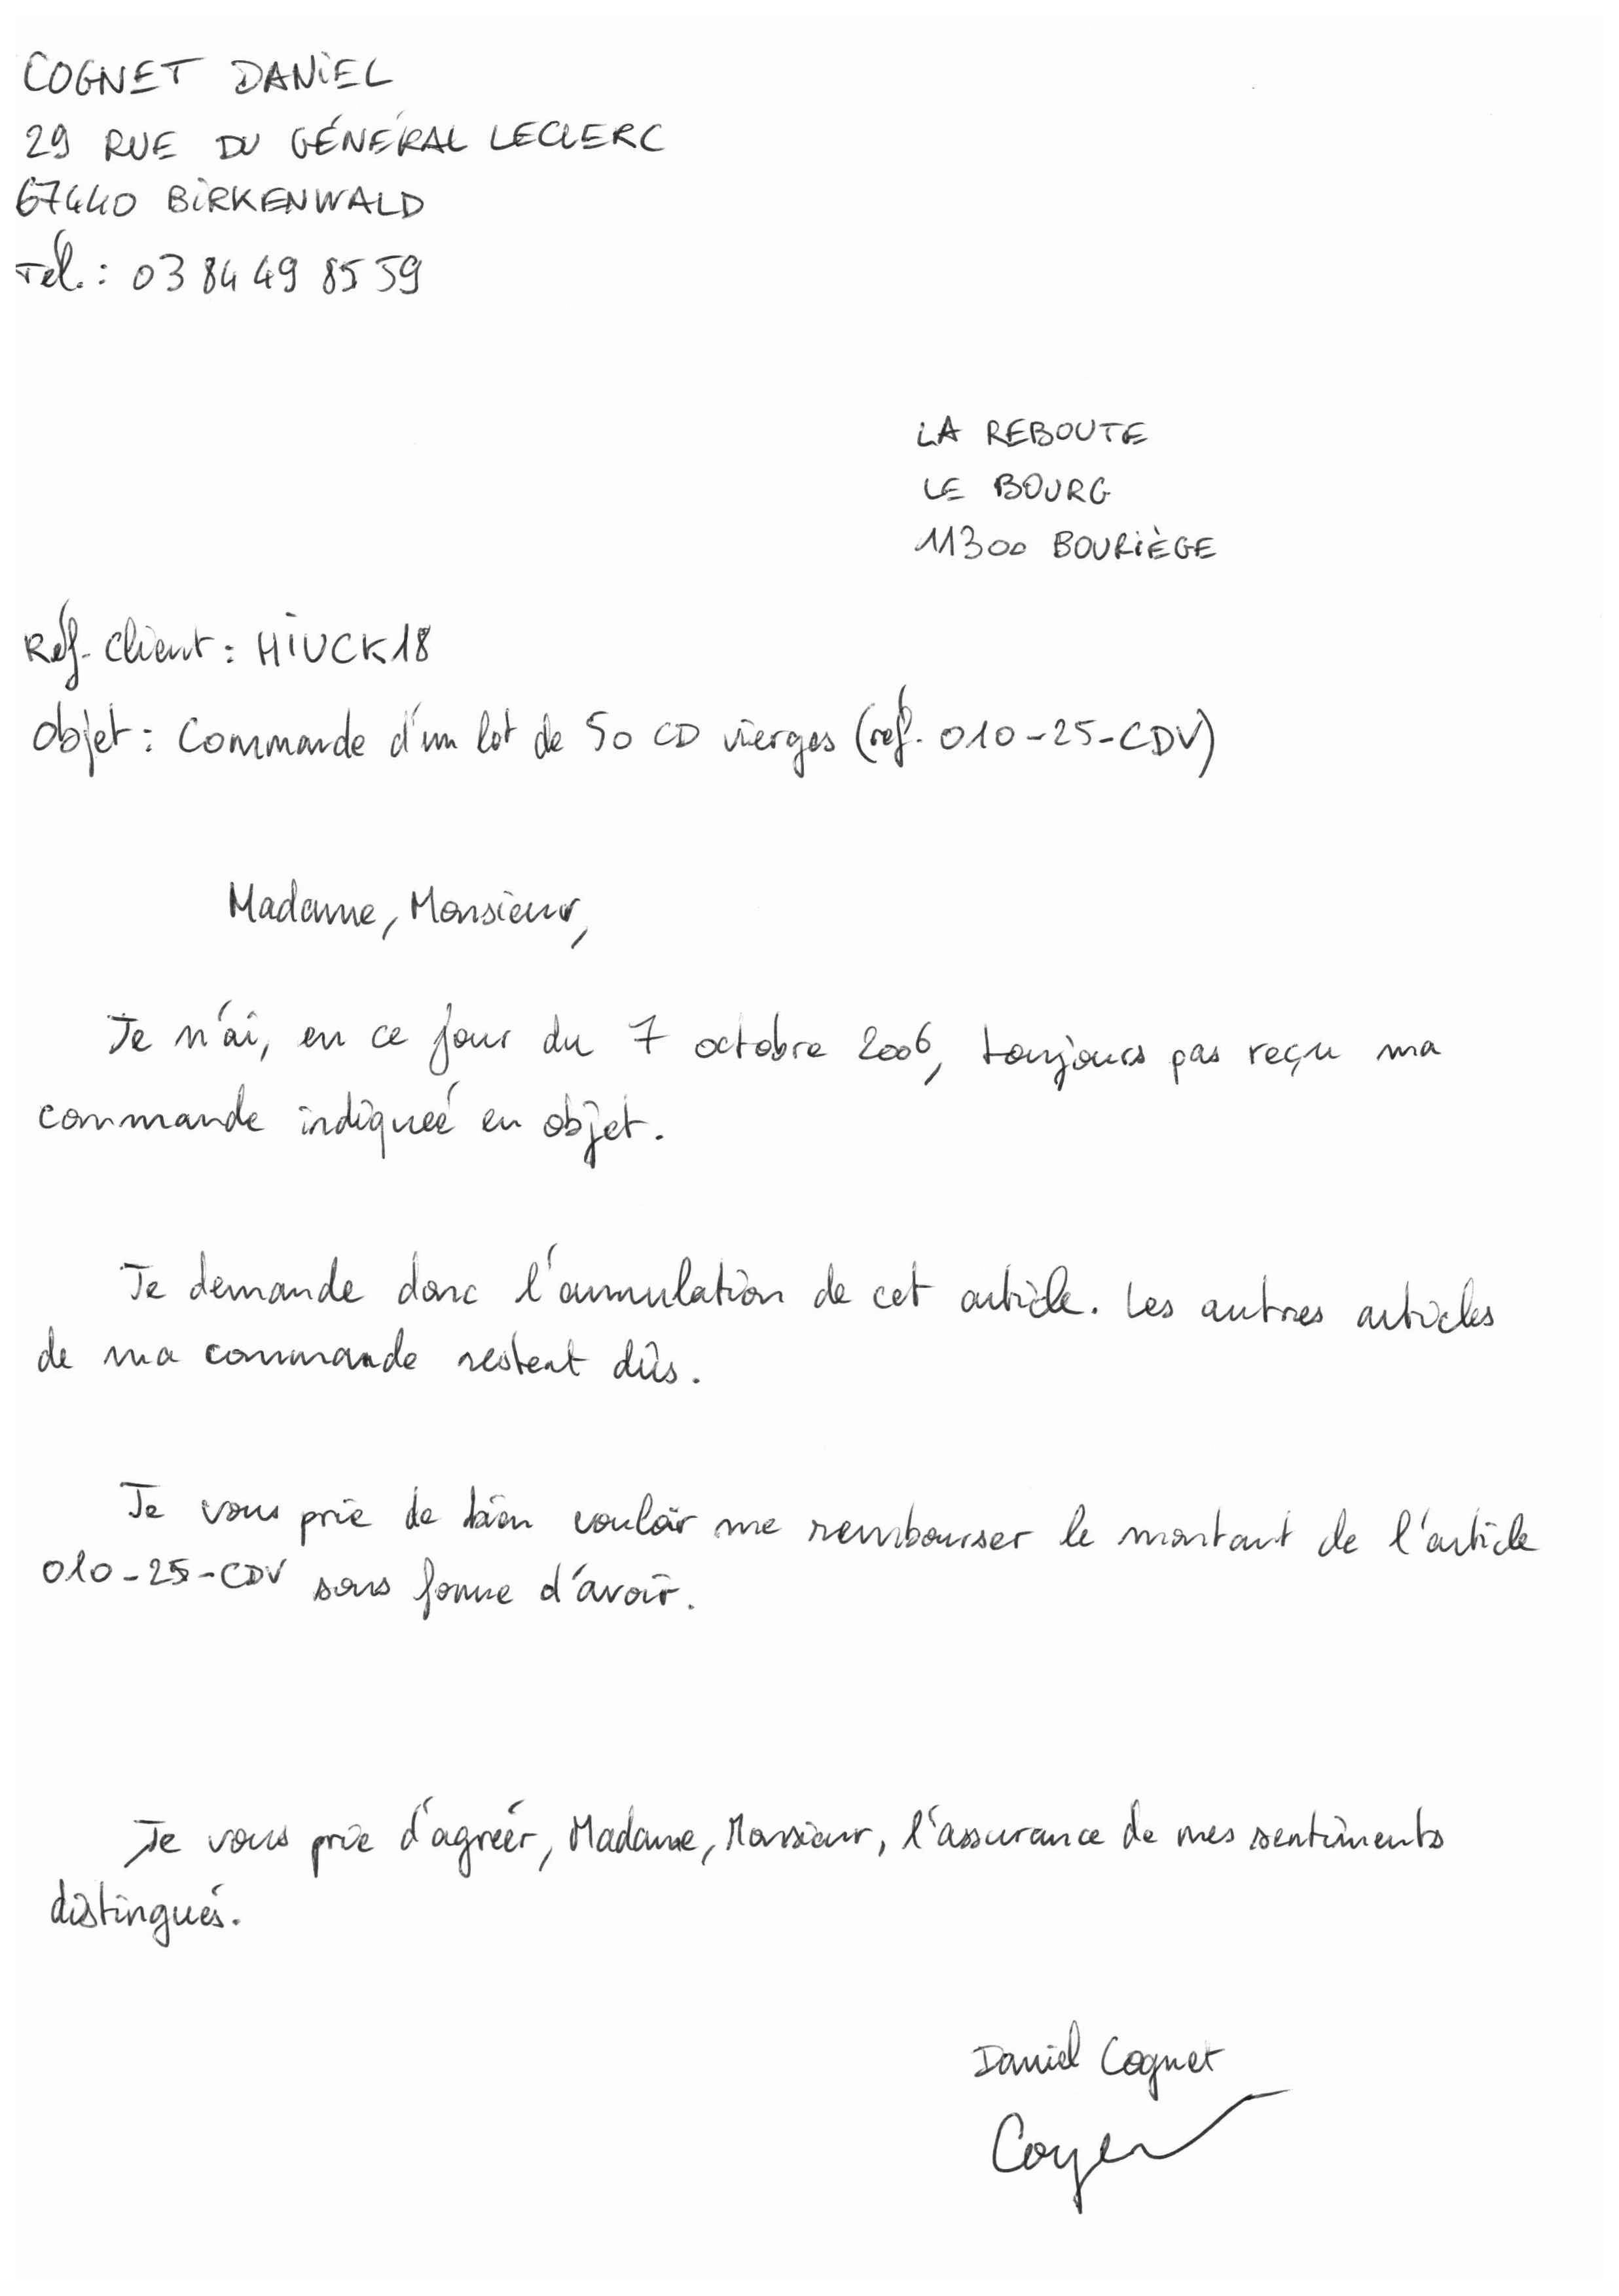 COGNET DANIEL
29 RUE DU GÉNÉRAL LECLERC
67440 BIRKENWALD
Tél.: 03 84 49 85 59
LA REBOUTE
LE BOURG
11300 BOURIÈGE
Réf. Client : HIUCK18
Objet : Commande d'un lot de 50 CD vierges (réf. 010-25-CDV)
Madame, Monsieur,
Je n'ai, en ce jour du 7 octobre 2006, toujours pas reçu ma
commande indiqueé en objet.
Je demande donc l'annulation de cet article. Les autres articles
de ma commande restent dûs.
Je vous prie de bien vouloir me rembourser le montant de l'article
010-25-CDV sous forme d'avoir.
Je vous prie d'agréer, Madame, Monsieur, l'assurance de mes sentiments
distingués.
Daniel Cognet